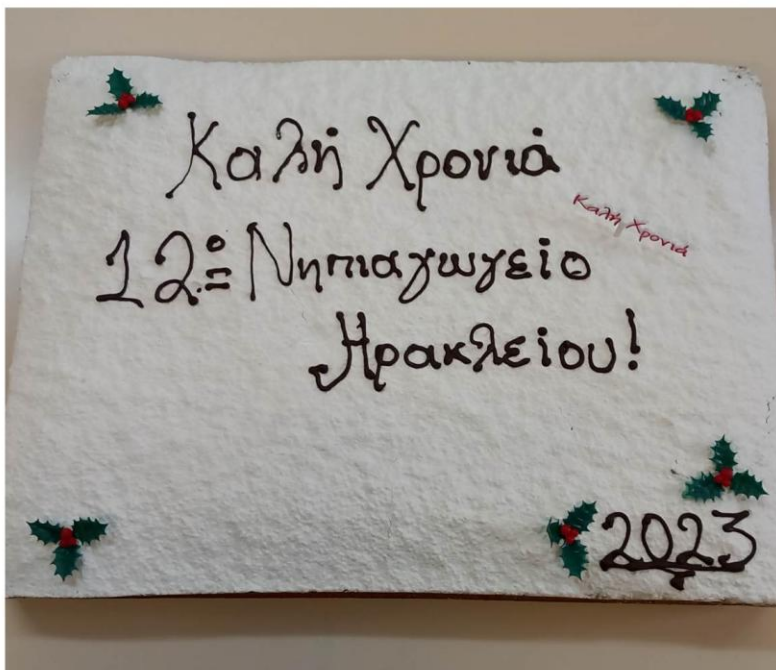 Καλή Χρονιά
Καλή Χρονιά
12ο Νηπιαγωγείο
Ηρακλείου!
2023